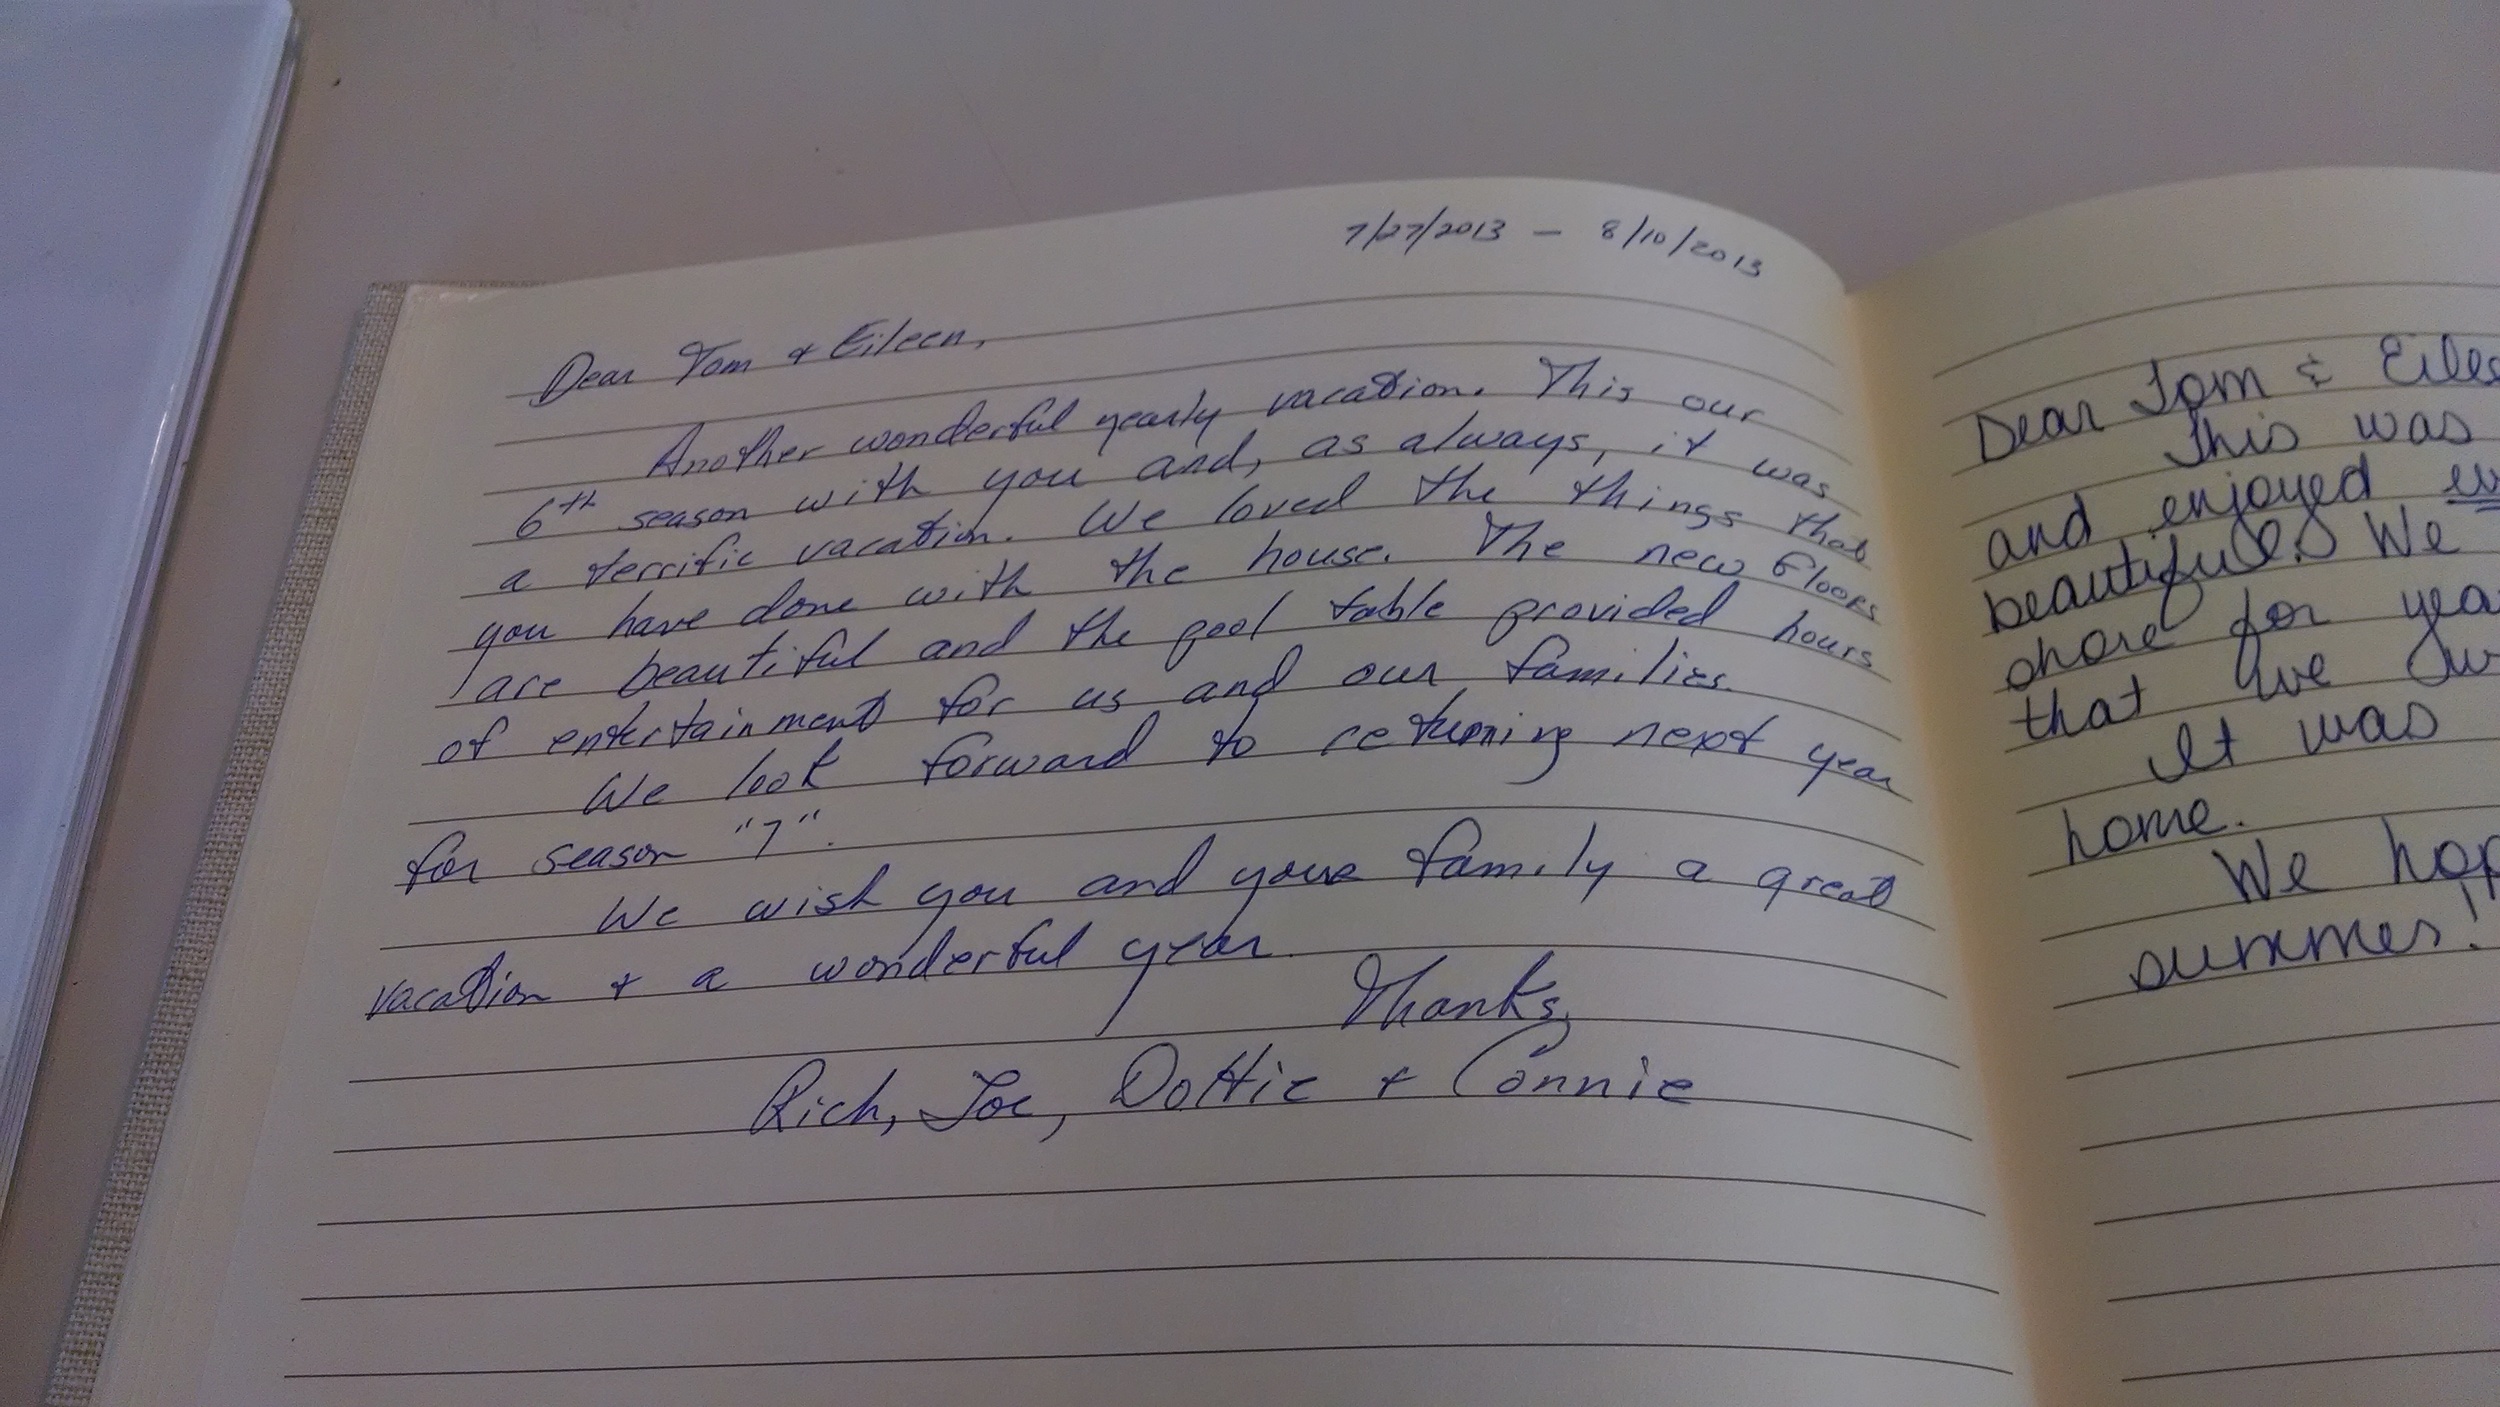 7/27/2013 – 8/10/2013
Dear Tom & Eileen,
Another wonderful yearly vacation. This our
6th season with you and, as always, it was
a terrific vacation. We loved the things that
you have done with the house. The new floors
are beautiful and the pool table provided hours
of entertainment for us and our families.
We look forward to returning next year
for season "7".
We wish you and your family a great
vacation & a wonderful year.
Thanks,
Rich, Joe, Dottie & Connie
Dear Tom &
This was
and enjoyed
beautiful. We
shore for
that we
It was
home.
We
summer!